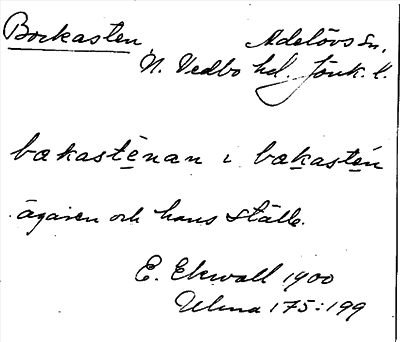 Borkasten, Adelövs sn,
N. Vedbo hd. Jönk. l.
bækastẹnan i bæḳastẹn
ägaren och hans ställe.
E. Ekwall 1900
Ulma 175:199